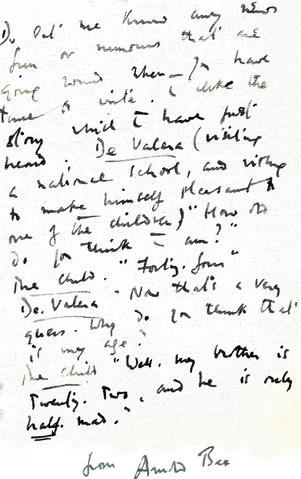 Do let me know any news
fun or rumours that are
going round when — you have
time to write. I like the
story which I have just
heard. De Valera (visiting
a national school, and wishing
to make himself pleasant to
one of the children) "How old
do you think I am?"
The child. "Forty-four"
De. Valera. Now that's a very
queer. Why do you think that
is my age?
The child "Well, my brother is
Twenty. Two, and he is only
half. mad."
from Arnold Bax